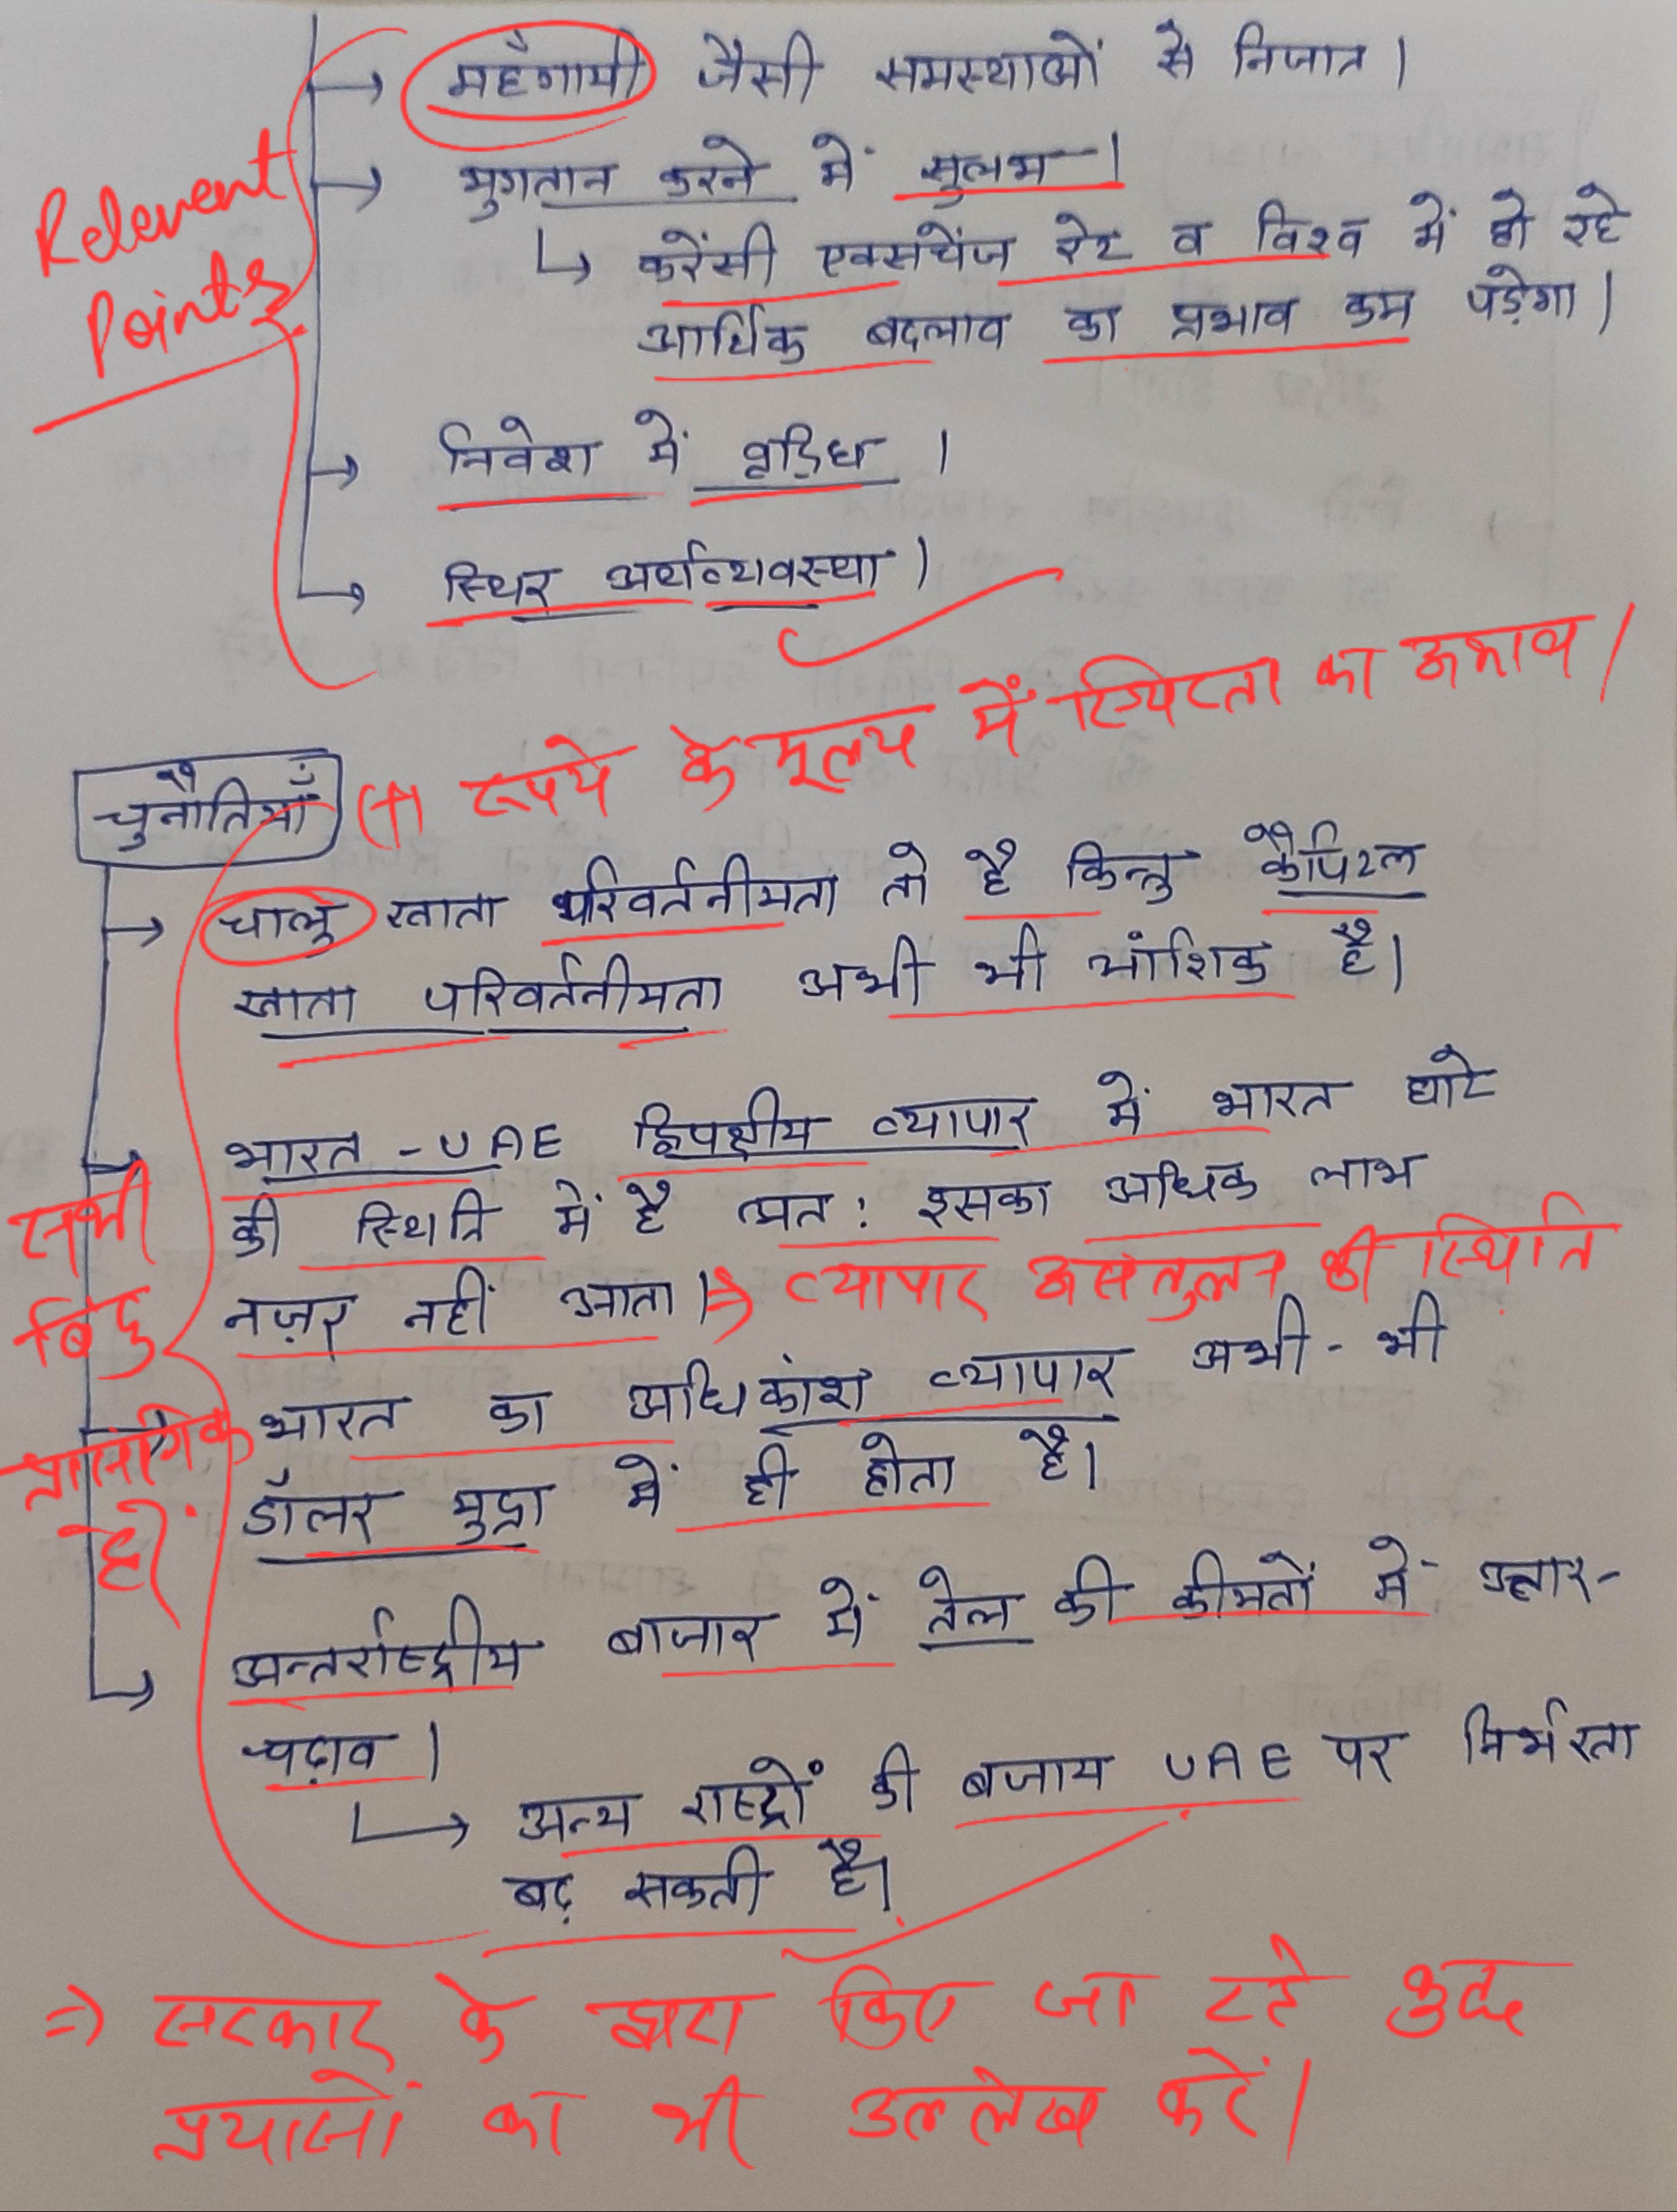 → महँगायी जैसी समस्याओं से निजात।
Relevent
Points
→ भुगतान करने में सुलभ।
↳ करेंसी एक्सचेंज रेट व विश्व में हो रहे
आर्थिक बदलाव का प्रभाव कम पड़ेगा।
→ निवेश में वृद्धि।
↳ स्थिर अर्थव्यवस्था।
चुनौतियाँ (+) रूपये के मूल्य में स्थिरता का अभाव।
→ चालु खाता परिवर्तनीयता तो है किन्तु कैपिटल
खाता परिवर्तनीयता अभी भी आंशिक है।
→ भारत - UAE द्विपक्षीय व्यापार में भारत घाटे
की स्थिति में है अत: इसका अधिक लाभ
नज़र नहीं आता। ⇒ व्यापार असंतुलन की स्थिति
सभी
बिंदु
प्रासंगिक
हैं।
→ भारत का अधिकांश व्यापार अभी-भी
डॉलर मुद्रा में ही होता है।
↳ अन्तर्राष्ट्रीय बाजार में तेल की कीमतों में उतार-
चढ़ाव।
↳ अन्य राष्ट्रों की बजाय UAE पर निर्भरता
बढ़ सकती है।
⇒ सरकार के द्वारा किए जा रहे कुछ
प्रयासों का भी उल्लेख करें।